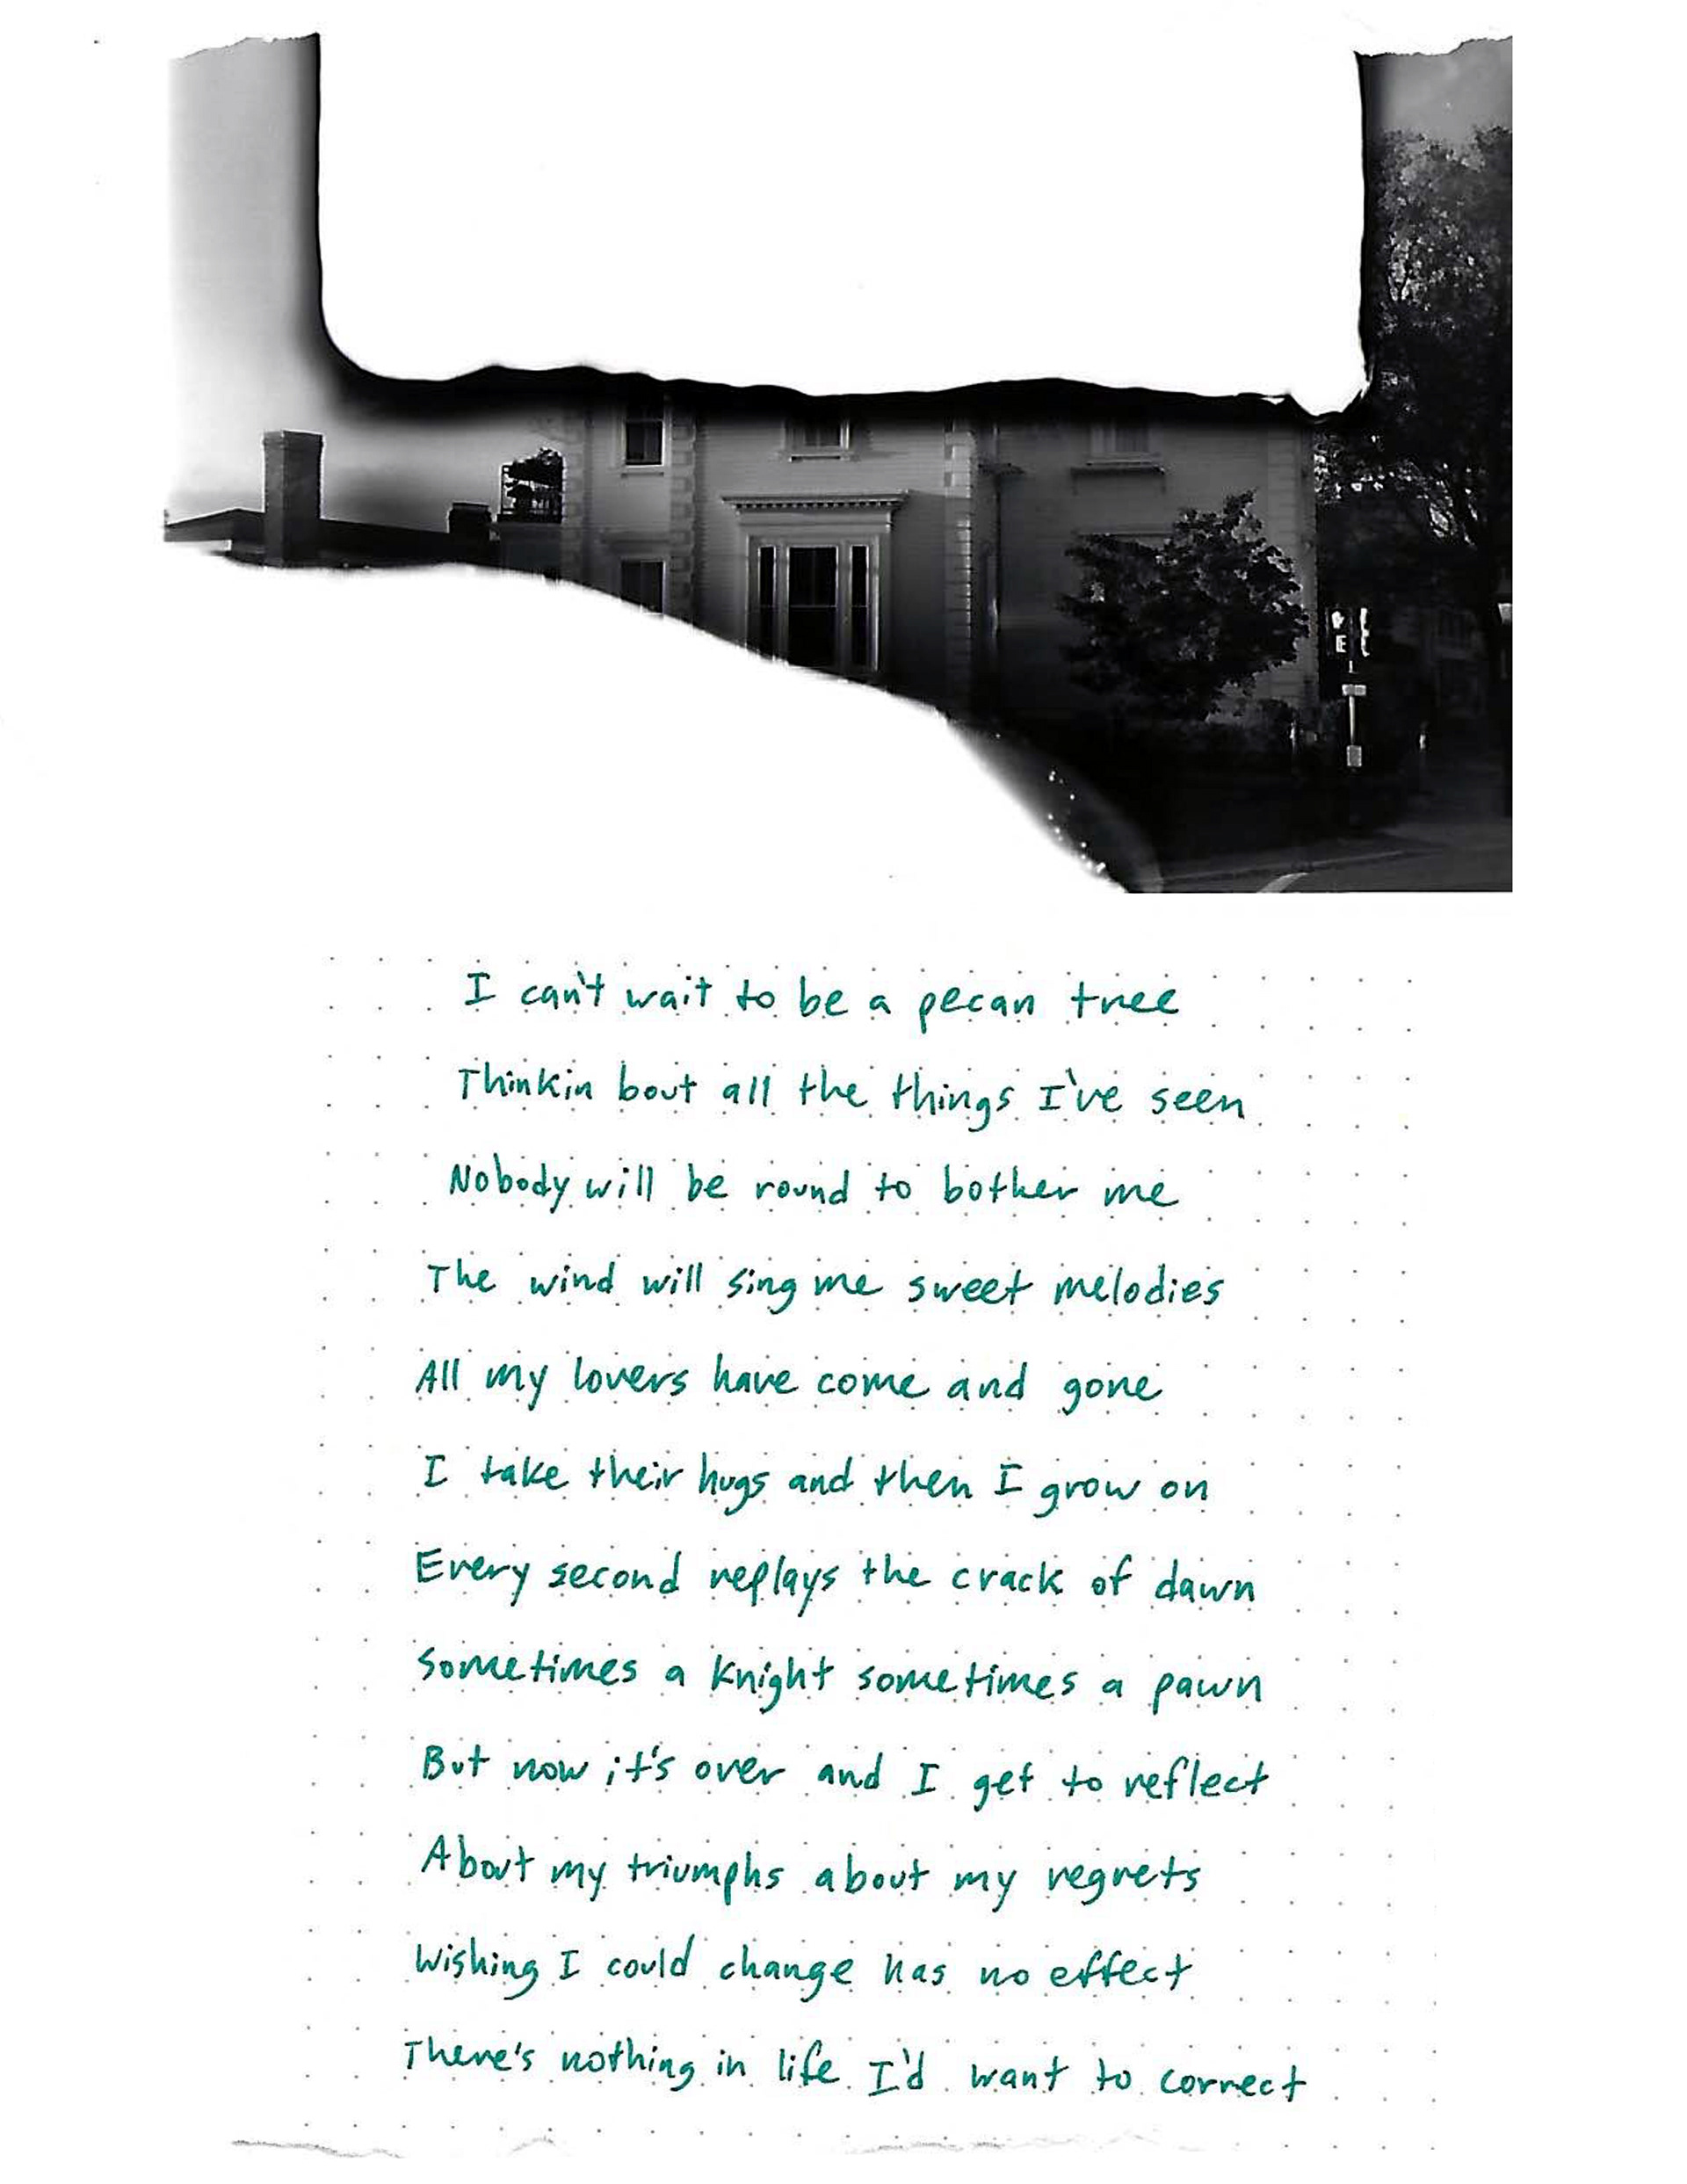 I can't wait to be a pecan tree
Thinkin bout all the things I've seen
Nobody will be round to bother me
The wind will sing me sweet melodies
All my lovers have come and gone
I take their hugs and then I grow on
Every second replays the crack of dawn
Sometimes a knight sometimes a pawn
But now it's over and I get to reflect
About my triumphs about my regrets
Wishing I could change has no effect
There's nothing in life I'd want to correct